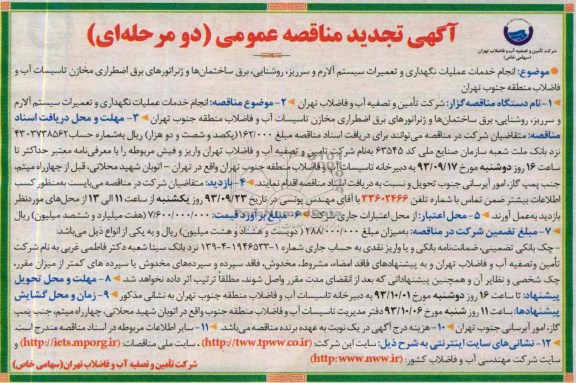 شرکت تأمین و تصفیه آب و فاضلاب تهران
(سهامی خاص)
آگهی تجدید مناقصه عمومی (دو مرحله‌ای)
موضوع: انجام خدمات عملیات نگهداری و تعمیرات سیستم آلارم و سرریز، روشنایی، برق ساختمان‌ها و ژنراتورهای برق اضطراری مخازن تاسیسات آب و
فاضلاب منطقه جنوب تهران
۱- نام دستگاه مناقصه‌گزار: شرکت تأمین و تصفیه آب و فاضلاب تهران ۲- موضوع مناقصه: انجام خدمات عملیات نگهداری و تعمیرات سیستم آلارم
و سرریز، روشنایی، برق ساختمان‌ها و ژنراتورهای برق اضطراری مخازن تاسیسات آب و فاضلاب منطقه جنوب تهران ۳- مهلت و محل دریافت اسناد
مناقصه: متقاضیان شرکت در مناقصه می‌توانند برای دریافت اسناد مناقصه مبلغ ۱۶۲/۰۰۰ (یکصد و شصت و دو هزار) ریال به‌شماره حساب ۴۳۰۳۷۳۸۵۶۲
نزد بانک ملت شعبه سازمان صنایع ملی کد ۶۳۵۴۵ به‌نام شرکت تامین و تصفیه آب و فاضلاب تهران واریز و فیش مربوطه را با معرفی‌نامه معتبر حداکثر تا
ساعت ۱۶ روز دوشنبه مورخ ۹۳/۰۹/۱۷ به دبیرخانه تاسیسات آب و فاضلاب منطقه جنوب تهران واقع در تهران - اتوبان شهید محلاتی، قبل از چهارراه میثم،
جنب پمپ گاز، امور آبرسانی جنوب تحویل و نسبت به دریافت اسناد مناقصه اقدام نمایند. ۴- بازدید: متقاضیان شرکت در مناقصه می‌بایست به‌منظور کسب
اطلاعات بیشتر ضمن تماس با شماره تلفن ۳۳۶۰۲۴۶۶ با آقای مهندس یونسی در تاریخ ۹۳/۰۹/۲۳ روز یکشنبه از ساعت ۱۱ الی ۱۳ از محل‌های موردنظر
بازدید به‌عمل آورند. ۵- محل اعتبار: از محل اعتبارات جاری شرکت ۶- مبلغ برآورد قیمت: ۷/۶۰۰/۰۰۰/۰۰۰ (هفت میلیارد و ششصد میلیون) ریال
۷- مبلغ تضمین شرکت در مناقصه: به‌میزان مبلغ ۲۸۸/۰۰۰/۰۰۰ (دویست و هشتاد و هشت میلیون) ریال و به یکی از انواع ذیل می‌باشد:
-چک بانکی تضمینی، ضمانت‌نامه بانکی و یا واریز نقدی به حساب جاری شماره ۱-۱۹۴۶۵۳۳-۴-۱۳۹ نزد بانک سینا شعبه دکتر فاطمی غربی به نام شرکت
تأمین وتصفیه آب و فاضلاب تهران و به پیشنهادهای فاقد امضاء، مشروط، مخدوش، فاقد سپرده و سپرده‌های مخدوش یا سپرده های کمتر از میزان مقرر،
چک شخصی و نظایر آن و همچنین پیشنهاداتی که بعد از انقضای مدت مقرر واصل شوند، مطلقاً ترتیب اثر داده نخواهد شد ۸- مهلت و محل تحویل
پیشنهاد: تا ساعت ۱۶ روز دوشنبه مورخ ۹۳/۱۰/۰۱ به دبیرخانه تاسیسات آب و فاضلاب منطقه جنوب تهران به نشانی مذکور ۹- زمان و محل گشایش
پیشنهادها: ساعت ۱۱ روز شنبه مورخ ۹۳/۱۰/۰۶ دفتر مدیریت تاسیسات آب و فاضلاب منطقه جنوب واقع در اتوبان شهید محلاتی، چهارراه میثم، جنب پمپ
گاز، امور آبرسانی جنوب تهران ۱۰- هزینه درج آگهی در یک نوبت به عهده برنده مناقصه می‌باشد. ۱۱- سایر اطلاعات مربوطه در اسناد مناقصه مندرج است.
۱۲- نشانی‌های سایت اینترنتی به شرح ذیل: سایت این شرکت: (http://tww.tpww.co.ir) و سایت ملی مناقصات: (http://iets.mporg.ir) و
سایت شرکت مهندسی آب و فاضلاب کشور: (http:www.nww.ir)
شرکت تأمین و تصفیه آب و فاضلاب تهران(سهامی خاص)